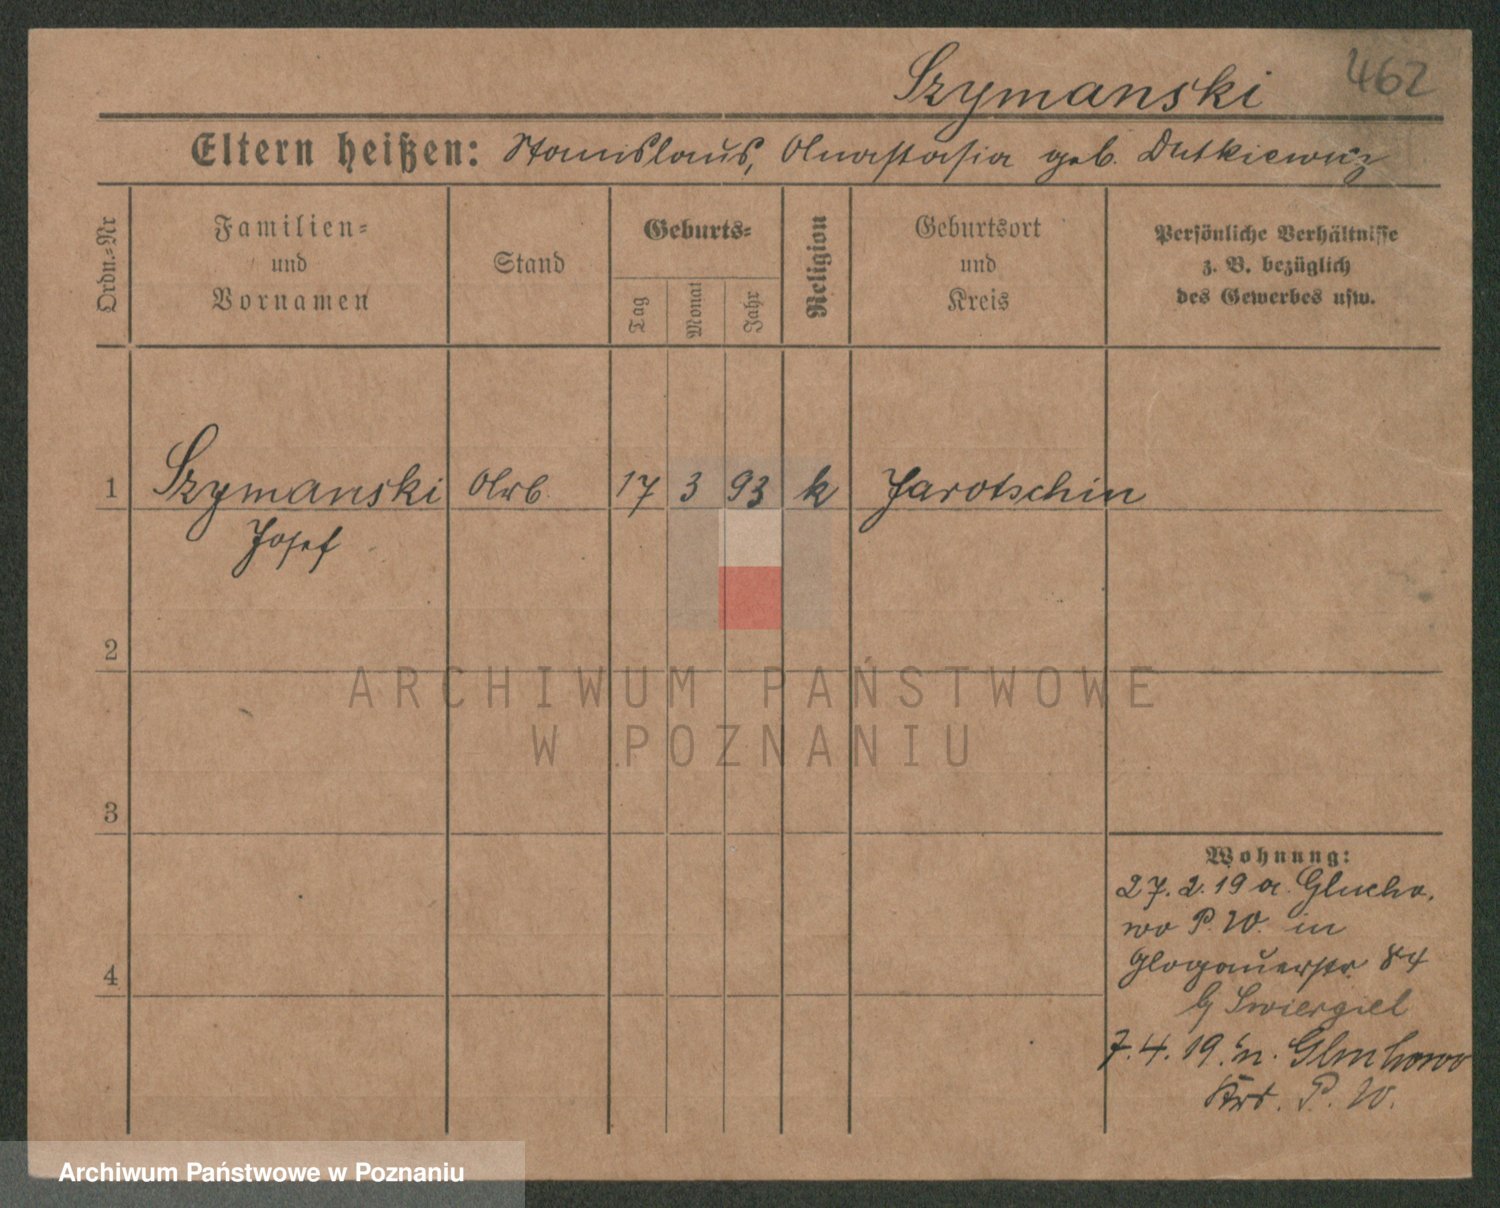 Szymanski 462
Eltern heißen: Stanislaus, Anastasia geb. Dutkiewicz
Ordn.-Nr
Familien-
und
Vornamen
Stand
Geburts-
Tag
Monat
Jahr
Religion
Geburtsort
und
Kreis
Persönliche Verhältnisse
z. B. bezüglich
des Gewerbes usw.
1 Szymanski Arb. 17 3 93 k Jarotschin
Josef
2
ARCHIWUM PAŃSTWOWE
W POZNANIU
3
Wohnung:
27.2.19 a. Glucho.
wo P. W. in
Glogauerstr 84
b/ Swiergiel
4
7.4.19. n. Gluchowo
Krs. P. W.
Archiwum Państwowe w Poznaniu